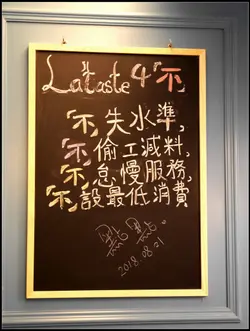 La'taste 4「不」
「不」失水準，
「不」偷工減料，
「不」怠慢服務，
「不」設最低消費
點點。
2018.08.21